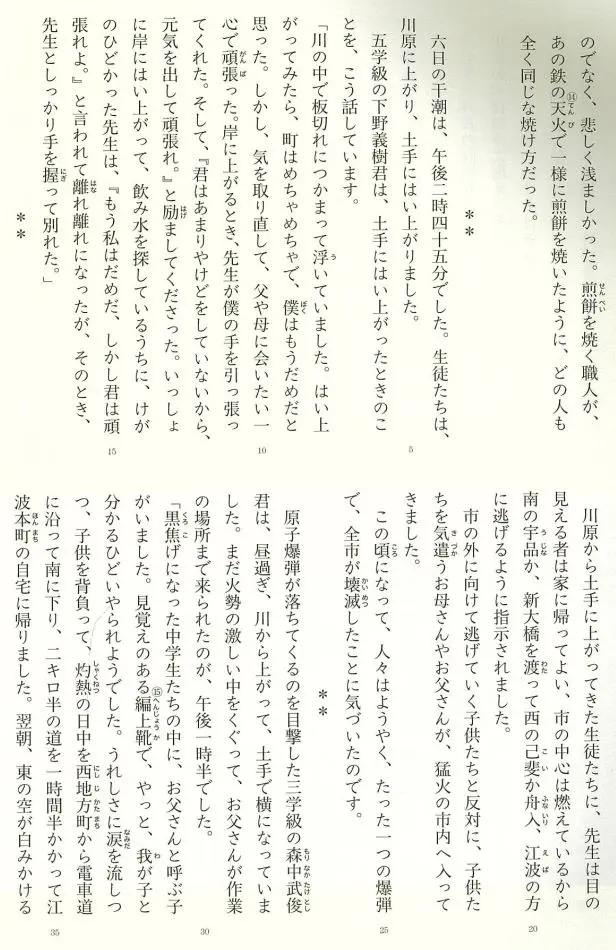 のでなく、悲しく浅ましかった。煎餅を焼く職人が、
あの鉄の天火で一様に煎餅を焼いたように、どの人も
全く同じな焼け方だった。
**
六日の干潮は、午後二時四十五分でした。生徒たちは、
川原に上がり、土手にはい上がりました。
五学級の下野義樹君は、土手にはい上がったときのこ
とを、こう話しています。
「川の中で板切れにつかまって浮いていました。はい上
がってみたら、町はめちゃめちゃで、僕はもうだめだと
思った。しかし、気を取り直して、父や母に会いたい一
心で頑張った。岸に上がるとき、先生が僕の手を引っ張っ
てくれた。そして、『君はあまりやけどをしていないから、
元気を出して頑張れ。』と励ましてくださった。いっしょ
に岸にはい上がって、飲み水を探しているうちに、けが
のひどかった先生は、『もう私はだめだ、しかし君は頑
張れよ。』と言われて離れ離れになったが、そのとき、
先生としっかり手を握って別れた。」
**
川原から土手に上がってきた生徒たちに、先生は目の
見える者は家に帰ってよい、市の中心は燃えているから
南の宇品か、新大橋を渡って西の己斐か舟入、江波の方
に逃げるように指示されました。
市の外に向けて逃げていく子供たちと反対に、子供た
ちを気遣うお母さんやお父さんが、猛火の市内へ入って
きました。
この頃になって、人々はようやく、たった一つの爆弾
で、全市が壊滅したことに気づいたのです。
**
原子爆弾が落ちてくるのを目撃した三学級の森中武俊
君は、昼過ぎ、川から上がって、土手で横になっていま
した。まだ火勢の激しい中をくぐって、お父さんが作業
の場所まで来られたのが、午後一時半でした。
「黒焦げになった中学生たちの中に、お父さんと呼ぶ子
がいました。見覚えのある編上靴で、やっと、我が子と
分かるひどいやられようでした。うれしさに涙を流しつ
つ、子供を背負って、灼熱の日中を西地方町から電車道
に沿って南に下り、二キロ半の道を一時間半かかって江
波本町の自宅に帰りました。翌朝、東の空が白みかける